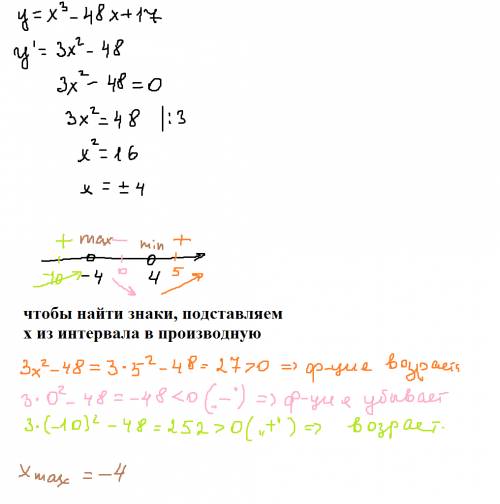 y=x³-48x+17
y'=3x²-48
3x²-48=0
3x²=48 |:3
x²=16
x=±4
+ max - min +
-10 -4 0 4 5
чтобы найти знаки, подставляем
х из интервала в производную
3x²-48=3·5²-48=27>0 => ф-ция возрает
3·0²-48=-48<0 („-“) => ф-ция убывает
3·(-10)²-48=252>0 („+“) => возрает.
x max = -4